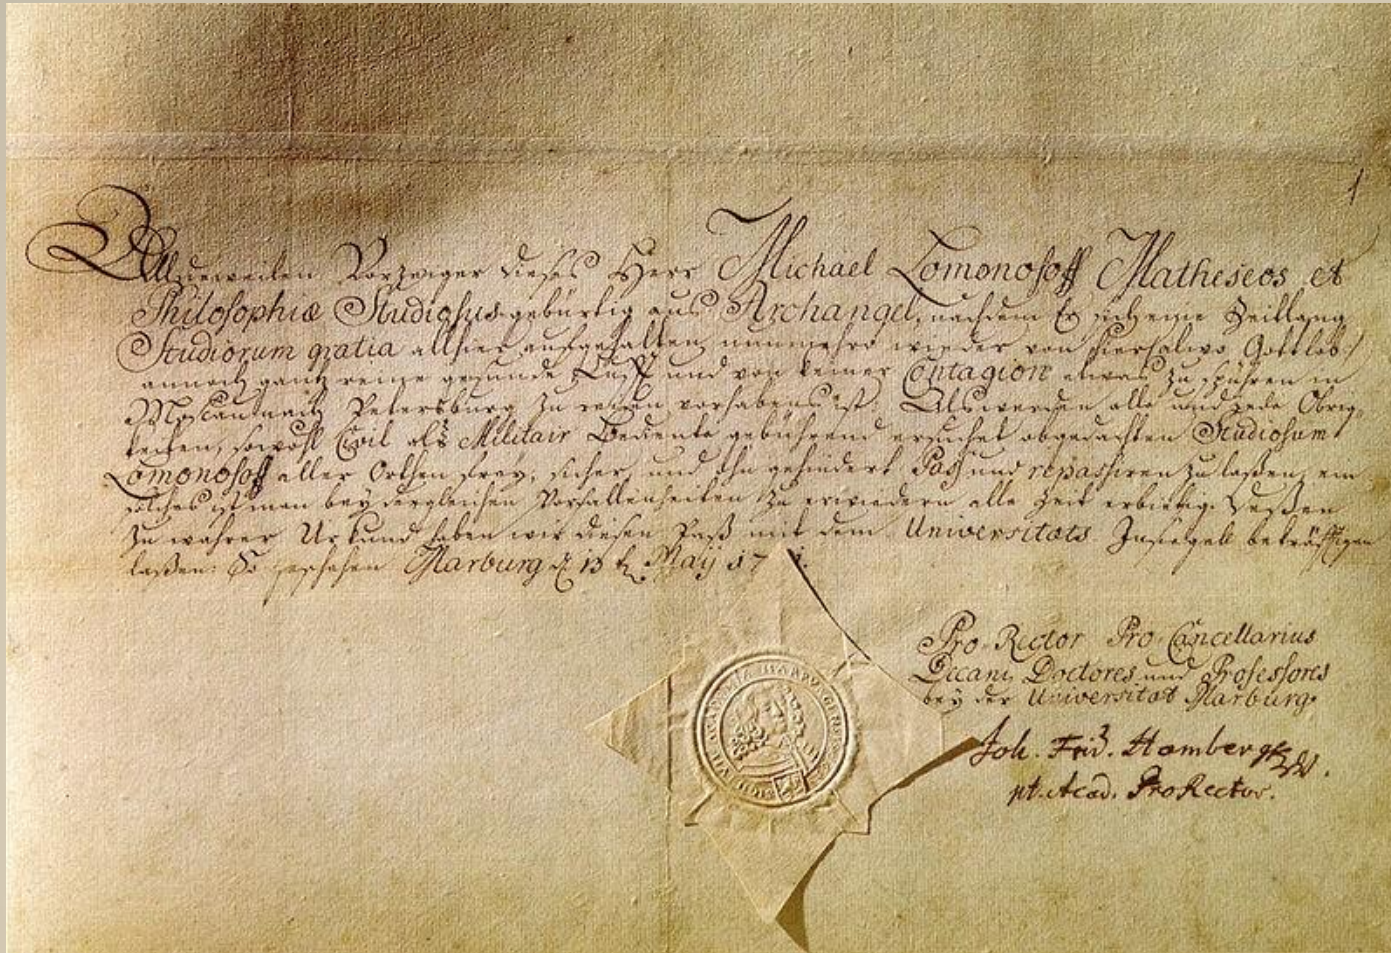 1
Alldieweilen Vorzeiger dieses Herr Michael Lomonosoff Matheseos et
Philosophiæ Studiosus gebürtig aus Archangel, nachdem Er sich eine Zeitlang
Studiorum gratia allhier aufgehalten, nunmehro wieder von hier salvo Gottlob!
annoch gantz reine gesunde Lufft und von keiner Contagion etwas zu spühren in
Moscau nach Petersburg zu reisen vorhabens ist; Als werden alle und jede Obrig-
keiten, sowohl Civil als Militair Bediente gebührend ersuchet obgedachten Studiosum
Lomonosoff aller Orthen frey, sicher, und ohngehindert Paß und repassiren zu laßen, ein
solches ist man bey dergleichen Vorfallenheiten zu erwiedern alle Zeit erbietig. Deßen
zu wahrer Urkund haben wir diesen Paß mit dem Universitäts Insiegell bekräfftigen
laßen: So geschehen Marburg d. 13 Maij 17
Pro-Rector Pro-Cancellarius
Decani Doctores und Professores
bey der Universität Marburg.
Joh. Frid. Hombergk
pt. Acad. ProRector.